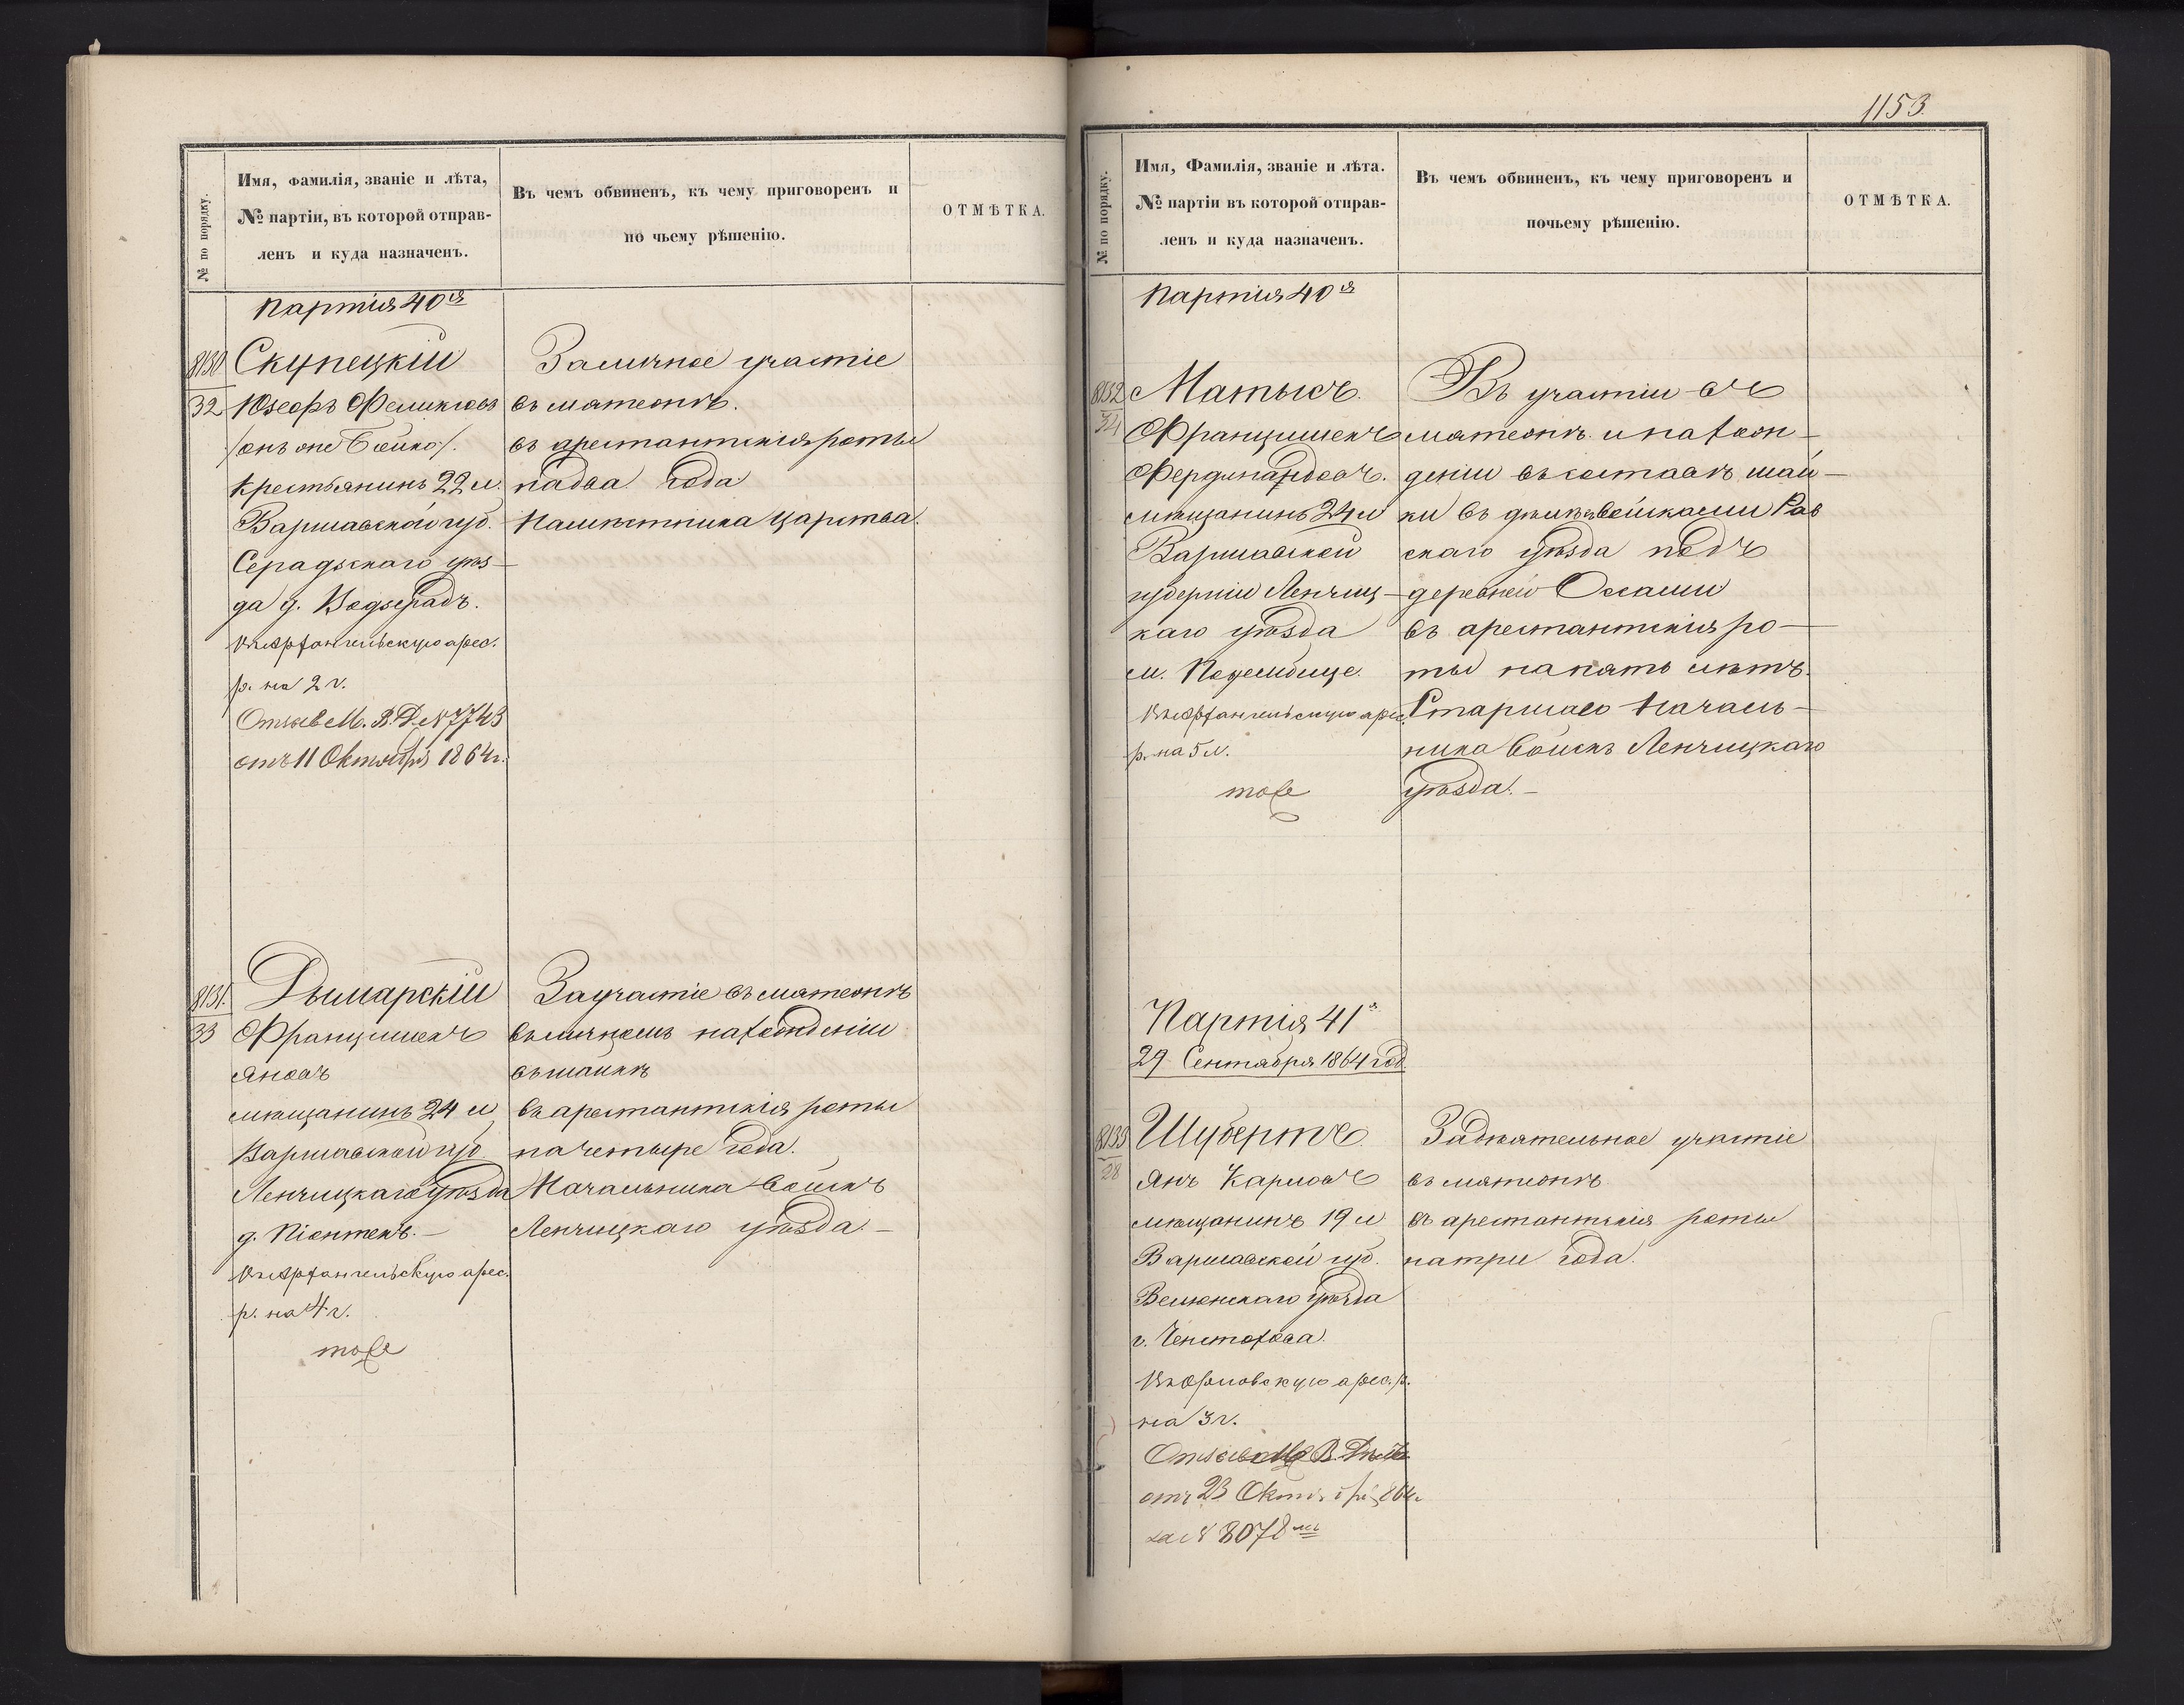 № по порядку.
Имя, фамилія, званіе и лѣта,
№ партіи, въ которой отправ-
ленъ и куда назначенъ.
Въ чемъ обвиненъ, къ чему приговоренъ и
по чьему рѣшенію.
ОТМѢТКА.
Партія 40я
8130
32
Скупецкій
Юзефъ Феликсовъ
/онъ же Бойко/.
крестьянинъ 22 л.
Варшавской губ.
Серадзскаго уѣз-
да д. Водзерадъ.
Въ Архангельскую арес.
р. на 2 г.
Отзывъ М. В. Д. № 7743
отъ 11 Октября 1864 г.
За личное участіе
въ мятежѣ.
въ арестантскія роты
на два года
Намѣстника Царства.
8131.
33
Дымарскій
Францишекъ
Яновъ
мѣщанинъ 24 л
Варшавской губ
Ленчицкаго уѣзда
д. Піонтекъ. —
Въ Архангельскую арес.
р. на 4 г.
тоже
За участіе въ мятежѣ
въ личномъ нахожденіи
въ шайкѣ
въ арестантскія роты
на четыре года.
Начальника войскъ
Ленчицкаго уѣзда. —
1153.
№ по порядку.
Имя, Фамилія, званіе и лѣта.
№ партіи въ которой отправ-
ленъ и куда назначенъ.
Въ чемъ обвиненъ, къ чему приговоренъ и
почьему рѣшенію.
ОТМѢТКА.
Партія 40я
8132
34
Матысъ.
Францишекъ
Фердинандовъ.
мѣщанинъ 24 л
Варшавской
губерніи Ленчиц-
каго уѣзда
м. Поддембице.
Въ Архангельскую арес.
р. на 5 л.
тоже
Въ участіи въ
мятежѣ и нахож-
деніи въ составѣ шай-
ки въ дѣлѣ съ войсками Рав
скаго уѣзда подъ
деревнею Оссами
въ арестантскія ро-
ты на пять лѣтъ.
Старшаго Началь-
ника войскъ Ленчицкаго
уѣзда. —
Партія 41я
29 Сентября 1864 год.
8133
28
Шубертъ
Янъ Карловъ
мѣщанинъ 19 л
Варшавской губ.
Велюнскаго уѣзда
г. Ченстохова.
Въ Орловскую арес. р.
на 3 г.
Отзывъ М. В. Дѣлъ
отъ 23 Октября 1864 г.
за № 8078мъ
За дѣятельное участіе
въ мятежѣ
въ арестантскія роты
на три года.